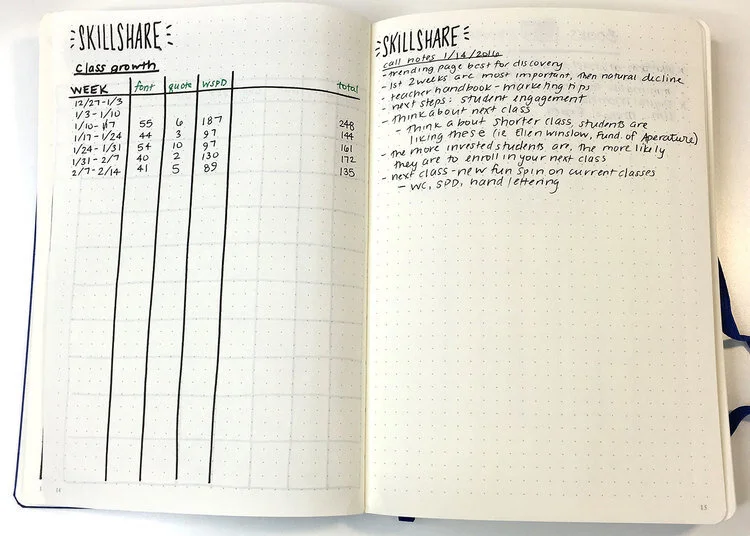 SKILLSHARE
Class growth
WEEK font quote WSPD total
12/27-1/3
1/3-1/10
1/10-1/17 55 6 187 248
1/17-1/24 44 3 97 144
1/24-1/31 54 10 97 161
1/31-2/7 40 2 130 172
2/7-2/14 41 5 89 135
14
SKILLSHARE
call notes 1/14/2016
- trending page best for discovery
- 1st 2 weeks are most important, then natural decline
- teacher handbook - marketing tips
- next steps: student engagement
- think about next class
- think about shorter class, students are
liking these (ie Ellen Winslow, Fund. of Aperature)
- the more invested students are, the more likely
they are to enroll in your next class
- next class - new fun spin on current classes
- WC, SPD, hand lettering
15